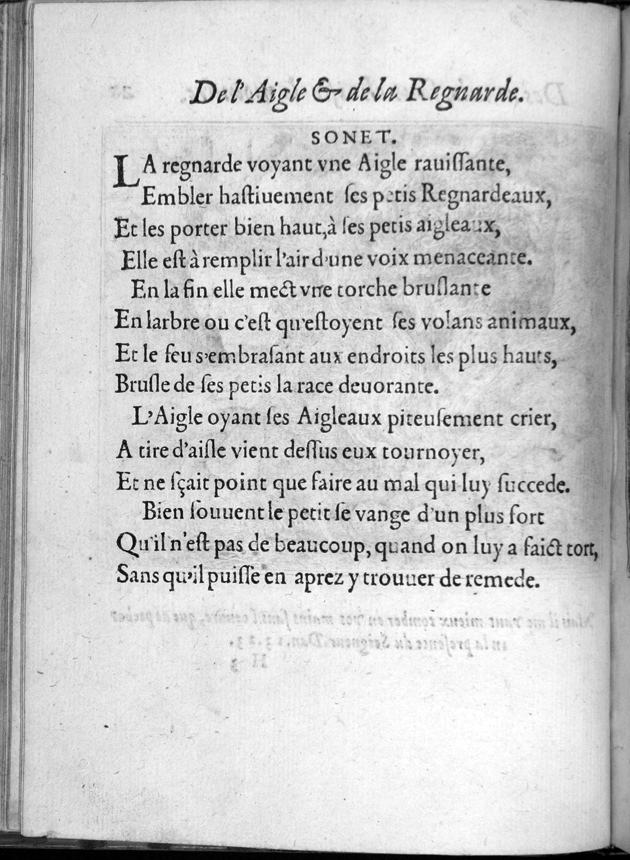 De l'Aigle & de la Regnarde.
SONET.
LA regnarde voyant vne Aigle rauiſſante,
Embler haſtiuement ſes petis Regnardeaux,
Et les porter bien haut, à ſes petis aigleaux,
Elle eſt à remplir l'air d'une voix menaceante.
En la fin elle mect vne torche bruſlante
En larbre ou c'eſt qu'eſtoyent ſes volans animaux,
Et le feu s'embraſant aux endroits les plus hauts,
Bruſle de ſes petis la race deuorante.
L'Aigle oyant ſes Aigleaux piteuſement crier,
A tire d'aiſle vient deſſus eux tournoyer,
Et ne ſçait point que faire au mal qui luy ſuccede.
Bien ſouuent le petit ſe vange d'un plus fort
Qu'il n'eſt pas de beaucoup, quand on luy a faict tort,
Sans qu'il puiſſe en aprez y trouuer de remede.